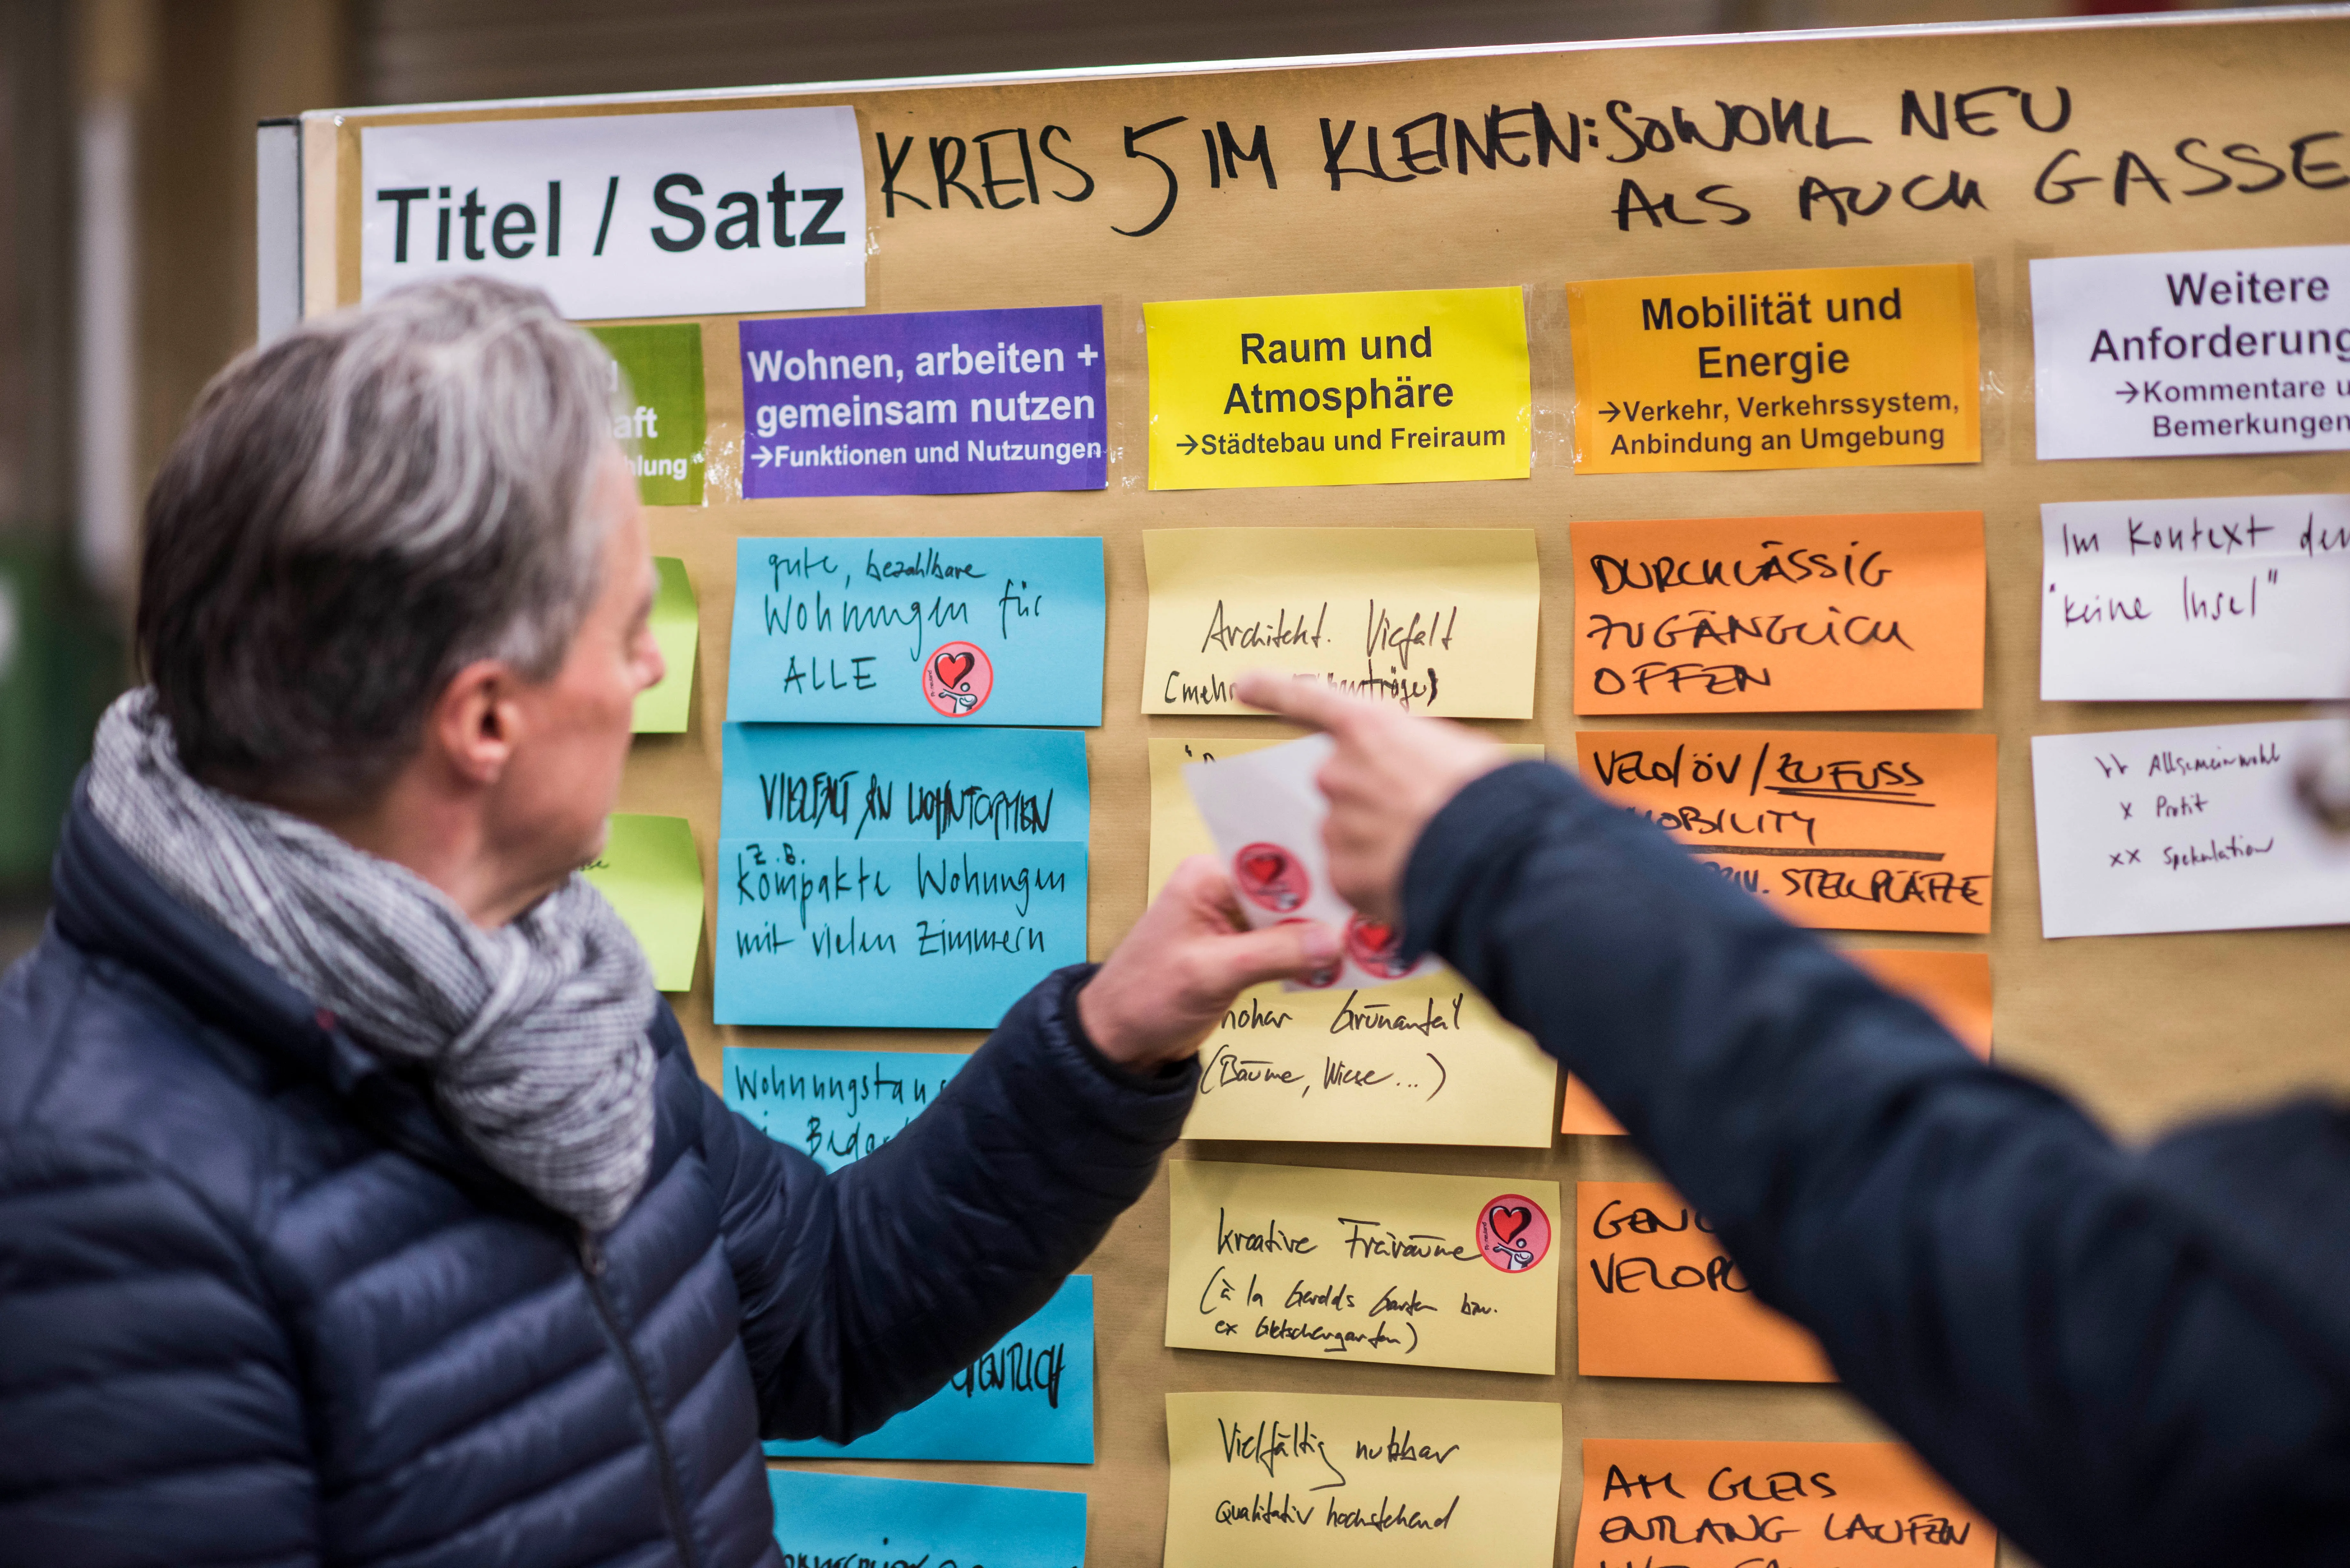 Titel / Satz
KREIS 5 IM KLEINEN: SOWOHL NEU
ALS AUCH GASSE
aft
hlung
Wohnen, arbeiten +
gemeinsam nutzen
→Funktionen und Nutzungen
Raum und
Atmosphäre
→Städtebau und Freiraum
Mobilität und
Energie
→Verkehr, Verkehrssystem,
Anbindung an Umgebung
Weitere
Anforderung
→Kommentare u
Bemerkungen
gute, bezahlbare
Wohnungen für
ALLE
VIELFALT AN WOHNFORMEN
z.B.
kompakte Wohungen
mit vielen Zimmern
Wohnungstaus
Beda
ENTLICH
Architekt. Vielfalt
(mehr
hoher Grünanteil
(Bäume, Wiese...)
kreative Freiräume
(à la Gerolds Garten bzw.
ex Gletschergarten)
Vielfältig nutzbar
Qualitativ hochstehend
DURCHLÄSSIG
ZUGÄNGLICH
OFFEN
VELO/ÖV/ZUFUSS
MOBILITY
STELLPLÄTZE
GENÜ
VELOP
AM GLEIS
ENTLANG LAUFEN
Im Kontext der
"keine Insel"
√√ Allgemeinwohl
x Profit
xx Spekulation